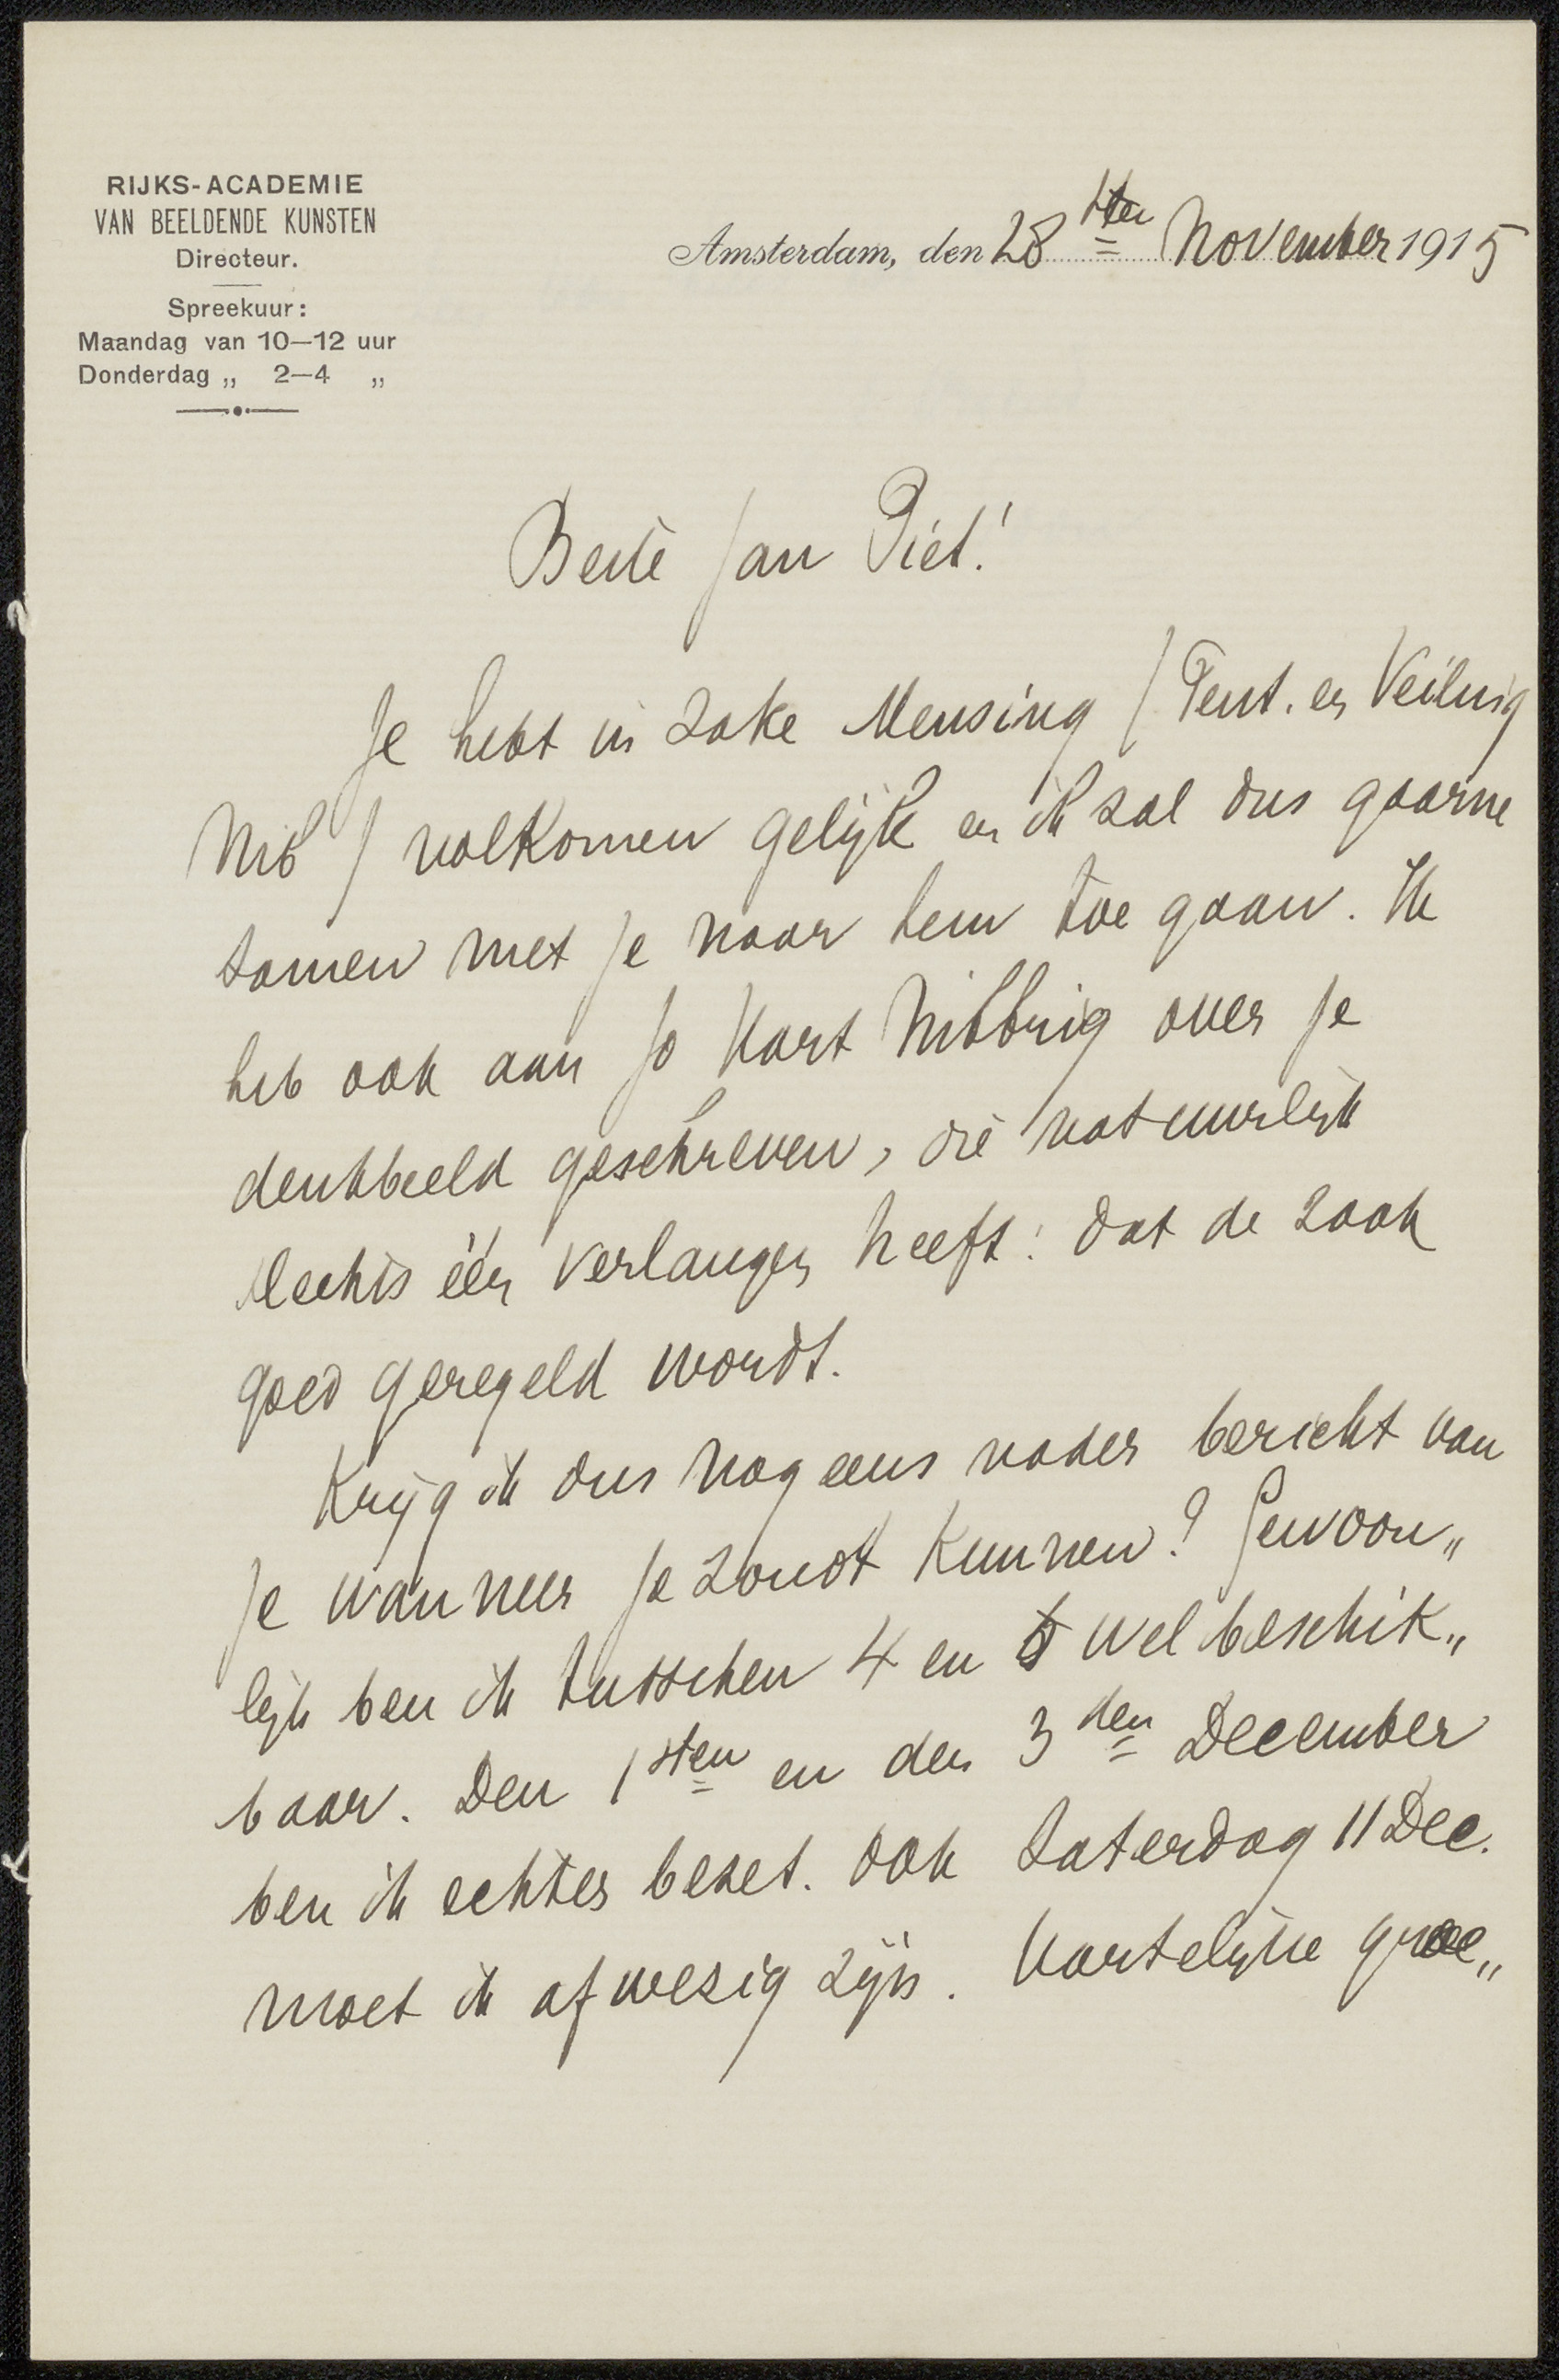 RIJKS-ACADEMIE
VAN BEELDENDE KUNSTEN
Directeur.
Spreekuur:
Maandag van 10—12 uur
Donderdag „ 2—4 „
Amsterdam, den 28sten November 1915
Beste Jan Piet!
Je hebt in zake Mensing (Tent. en Veiling
Nib) volkomen gelijk en ik zal dus gaarne
samen met je naar hem toe gaan. Ik
heb ook aan Jo Hart Nibbrig over je
denkbeeld geschreven, die natuurlijk
slechts één verlangen heeft: dat de zaak
goed geregeld wordt.
Krijg ik dus nog eens nader bericht van
je wanneer je zoudt kunnen? Gewoon„
lijk ben ik tusschen 4 en 5 wel beschik„
baar. Den 1sten en den 3den December
ben ik echter bezet. Ook Zaterdag 11 Dec.
moet ik afwezig zijn. Hartelijke groe„